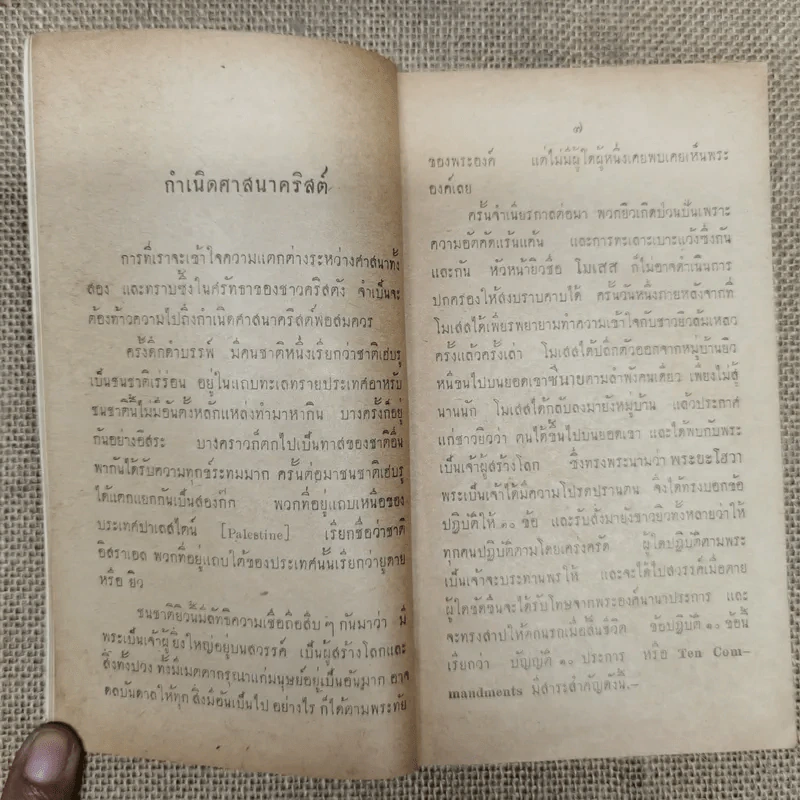 กำเนิดศาสนาคริสต์
การที่เราจะเข้าใจความแตกต่างระหว่างศาสนาทั้ง
สอง และทราบซึ้งในศรัทธาของชาวคริสตัง จำเป็นจะ
ต้องท้าวความไปถึงกำเนิดศาสนาคริสต์พอสมควร
ครั้งดึกดำบรรพ์ มีคนชาติหนึ่งเรียกว่าชาติเฮ่บรู
เป็นชนชาติเร่ร่อน อยู่ในแถบทะเลทรายประเทศอาหรับ
ชนชาตินี้ไม่มีอันตั้งหลักแหล่งทำมาหากิน บางครั้งก็อยู่
กันอย่างอิสระ บางคราวก็ตกไปเป็นทาสของชาติอื่น
พากันได้รับความทุกข์ระทมมาก ครั้นต่อมาชนชาติเฮ่บรู
ได้แตกแยกกันเป็นสองก๊ก พวกที่อยู่แถบเหนือของ
ประเทศปาเลสไตน์ [Palestine] เรียกชื่อว่าชาติ
อิสราเอล พวกที่อยู่แถบใต้ของประเทศนั้นเรียกว่ายูดาย
หรือ ยิว
ชนชาติยิวนี้มีลัทธิความเชื่อถือสืบๆ กันมาว่า มี
พระเป็นเจ้าผู้ยิ่งใหญ่อยู่บนสวรรค์ เป็นผู้สร้างโลกและ
สิ่งทั้งปวง ทั้งมีเมตตากรุณาแก่มนุษย์อยู่เป็นอันมาก อาจ
ดลบันดาลให้ทุกสิ่งมีอันเป็นไป อย่างไร ก็ได้ตามพระทัย
๗
ของพระองค์ แต่ไม่มีผู้ใดผู้หนึ่งเคยพบเคยเห็นพระ
องค์เลย
ครั้นจำเนียรกาลต่อมา พวกยิวเกิดป่วนปั่นเพราะ
ความอัตคัดแร้นแค้น และการทะเลาะเบาะแว้งซึ่งกัน
และกัน หัวหน้ายิวชื่อ โมเสส ก็ไม่อาจดำเนินการ
ปกครองให้สงบราบคาบได้ ครั้นวันหนึ่งภายหลังจากที่
โมเสสได้เพียรพยายามทำความเข้าใจกับชาวยิวล้มเหลว
ครั้งแล้วครั้งเล่า โมเสสได้ปลีกตัวออกจากหมู่บ้านยิว
หนีขึ้นไปบนยอดเขาซีนายตามลำพังคนเดียว เพียงไม่สู้
นานนัก โมเสสได้กลับลงมายังหมู่บ้าน แล้วประกาศ
แก่ชาวยิวว่า ตนได้ขึ้นไปบนยอดเขา และได้พบกับพระ
เป็นเจ้าผู้สร้างโลก ซึ่งทรงพระนามว่า พระยะโฮวา
พระเป็นเจ้าได้มีความโปรดปรานตน จึงได้ทรงบอกข้อ
ปฏิบัติให้ ๑๐ ข้อ และรับสั่งมายังชาวยิวทั้งหลายว่าให้
ทุกคนปฏิบัติตามโดยเคร่งครัด ผู้ใดปฏิบัติตามพระ
เป็นเจ้าจะประทานพรให้ และจะได้ไปสวรรค์เมื่อตาย
ผู้ใดขัดขืนจะได้รับโทษจากพระองค์นานาประการ และ
จะทรงสาปให้ตกนรกเมื่อสิ้นชีวิต ข้อปฏิบัติ ๑๐ ข้อนี้
เรียกว่า บัญญัติ ๑๐ ประการ หรือ Ten Com-
mandments มีสาระสำคัญดังนี้.–